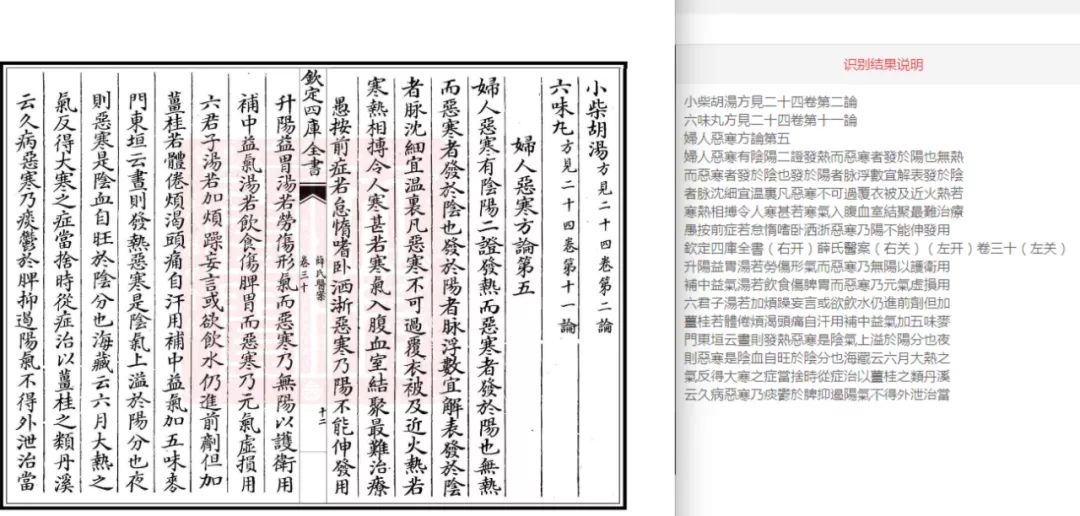 小柴胡湯方見二十四卷第二論
六味丸方見二十四卷第十一論
婦人惡寒方論第五
婦人惡寒有陰陽二證發熱而惡寒者發於陽也無熱
而惡寒者發於陰也發於陽者脉浮數宜解表發於陰
者脉沈細宜温裏凡惡寒不可過覆衣被及近火熱若
寒熱相搏令人寒甚若寒氣入腹血室結聚最難治療
愚按前症若怠惰嗜卧洒淅惡寒乃陽不能伸發用
欽定四庫全書
薛氏醫案
卷三十
十二
升陽益胃湯若勞傷形氣而惡寒乃無陽以護衛用
補中益氣湯若飲食傷脾胃而惡寒乃元氣虛損用
六君子湯若加煩躁妄言或欲飲水仍進前劑但加
薑桂若體倦煩渴頭痛自汗用補中益氣加五味麥
門東垣云晝則發熱惡寒是陰氣上溢於陽分也夜
則惡寒是陰血自旺於陰分也海藏云六月大熱之
氣反得大寒之症當捨時從症治以薑桂之類丹溪
云久病惡寒乃痰鬱於脾抑遏陽氣不得外泄治當
识别结果说明
小柴胡湯方見二十四卷第二論
六味丸方見二十四卷第十一論
婦人惡寒方論第五
婦人惡寒有陰陽二證發熱而惡寒者發於陽也無熱
而惡寒者發於陰也發於陽者脉浮數宜解表發於陰
者脉沈細宜温裏凡惡寒不可過覆衣被及近火熱若
寒熱相搏令人寒甚若寒氣入腹血室結聚最難治療
愚按前症若怠惰嗜卧洒淅惡寒乃陽不能伸發用
欽定四庫全書（右开）薛氏醫案（右关）（左开）卷三十（左关）
升陽益胃湯若勞傷形氣而惡寒乃無陽以護衛用
補中益氣湯若飲食傷脾胃而惡寒乃元氣虛損用
六君子湯若加煩躁妄言或欲飲水仍進前劑但加
薑桂若體倦煩渴頭痛自汗用補中益氣加五味麥
門東垣云晝則發熱惡寒是陰氣上溢於陽分也夜
則惡寒是陰血自旺於陰分也海藏云六月大熱之
氣反得大寒之症當捨時從症治以薑桂之類丹溪
云久病惡寒乃痰鬱於脾抑遏陽氣不得外泄治當